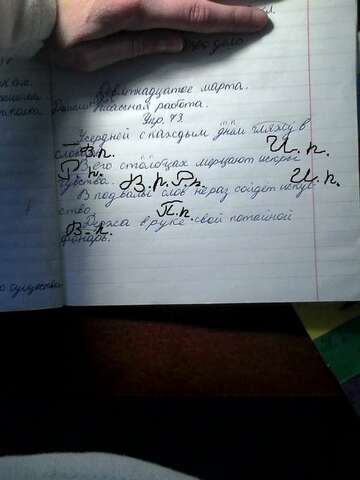 Девятнадцатое марта.
Классная работа.
Упр. 73.
Усердней с каждым днём гляжу в
словарь. В.п. И.п.
В его столбцах мерцают искры
чувства. В.п. Р.п. И.п.
В подвалы слов не раз сойдет искус
ство П.п.
Держа в руке свой потайной
В.п.
фонарь.